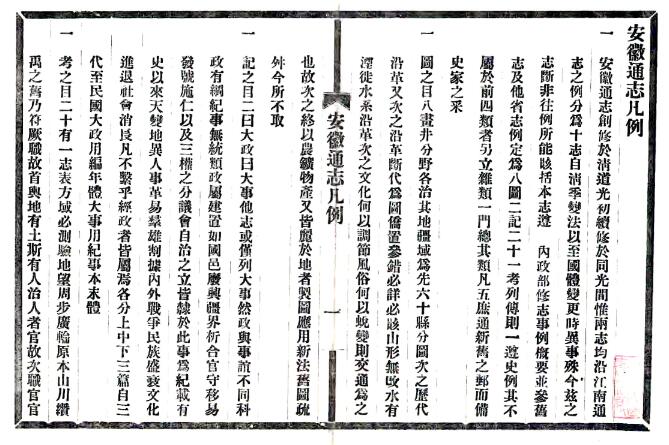 安徽通志凡例
一 安徽通志創修於清道光初續修於同光間惟兩志均沿江南通
志之例分爲十志自清季變法以至國體變更時異事殊今茲之
志斷非往例所能賅括本志遵 內政部修志事例概要並參舊
志及他省志例定爲八圖二記二十一考列傳則一遵史例其不
屬於前四類者另立雜類一門總其類凡五庶通新舊之郵而備
史家之采
一 圖之目八畫井分野各治其地疆域爲先六十縣分圖次之歷代
沿革又次之沿革斷代爲圖僑置參錯必詳必賅山形無改水有
溼徙水系沿革次之文化何以調節風俗何以蛻變則交通爲之
安徽通志凡例
一
也故次之終以農鑛物產又皆麗於地者製圖應用新法舊圖疏
舛今所不取
一 記之目二曰大政曰大事他志或僅列大事然政與事誼不同科
政有綱紀事無統類政屬建置如國邑廢興疆界析合官守移易
發號施仁以及三權之分議會自治之立皆隸於此事爲紀載有
史以來天變地異人事革易羣雄割據內外戰爭民族盛衰文化
進退社會消長凡不繫乎經政者皆屬焉各分上中下三篇自三
代至民國大政用編年體大事用紀事本末體
一 考之目二十有一志表方域必測驗地望周步廣輪原本山川纘
禹之舊乃符厥職故首輿地有土斯有人治人者官故次職官官